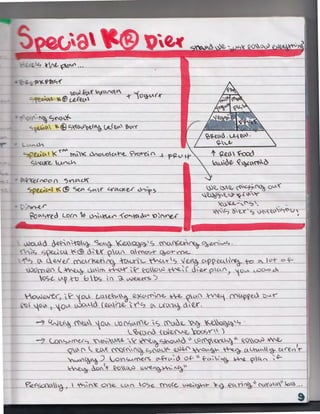 Special K® Diet
Here's the plan...
• Breakfast
low fat granola
Special K® cereal + Yogurt
• Morning Snack
Special K® strawberry cereal bar
• Lunch
Special K™ milk chocolate Protein + fruit
shake lunch
• Afternoon Snack
Special K® sea salt cracker chips
• Dinner
Roasted corn & chicken Tomato Dinner
Bread, cereal,
Rice
↑ Real Food
Guide Pyramid
We are missing our
veggie & fruit
This diet's
I would definitely say Kellogg's marketing genius.
This special K® diet plan almost got me.
It's a clever marketing tactic that's very appealing to a lot of
women (they claim that if follow their diet plan, you would
lose up to 6 lbs in 2 weeks)
However, if you carefully examine the plan they mapped out
for you, you would realize it's a crazy diet.
→ Every meal you consume is made by Kellogg's
(Brand revenue boost!!)
→ Consumers if they should "completely" follow the
plan (eat morning snack even though they actually aren't
hungry) Consumers afraid of "failing" the plan if
they don't follow everything"
Personally, I think one can lose more weight by eating
9